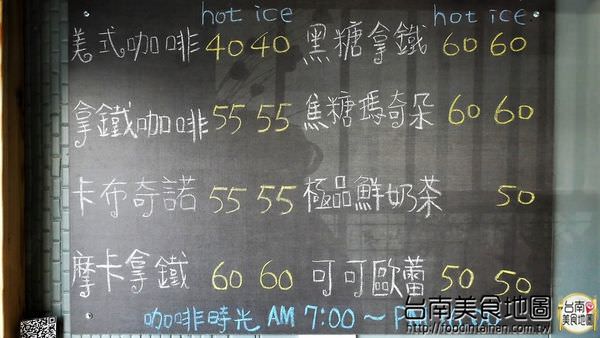 hot ice hot ice
美式咖啡 40 40 黑糖拿鐵 60 60
拿鐵咖啡 55 55 焦糖瑪奇朵 60 60
卡布奇諾 55 55 極品鮮奶茶 50
摩卡拿鐵 60 60 可可歐蕾 50 50
咖啡時光 AM 7:00 ~
台南美食地圖
http://foodintainan.com.tw
台南
美食地圖